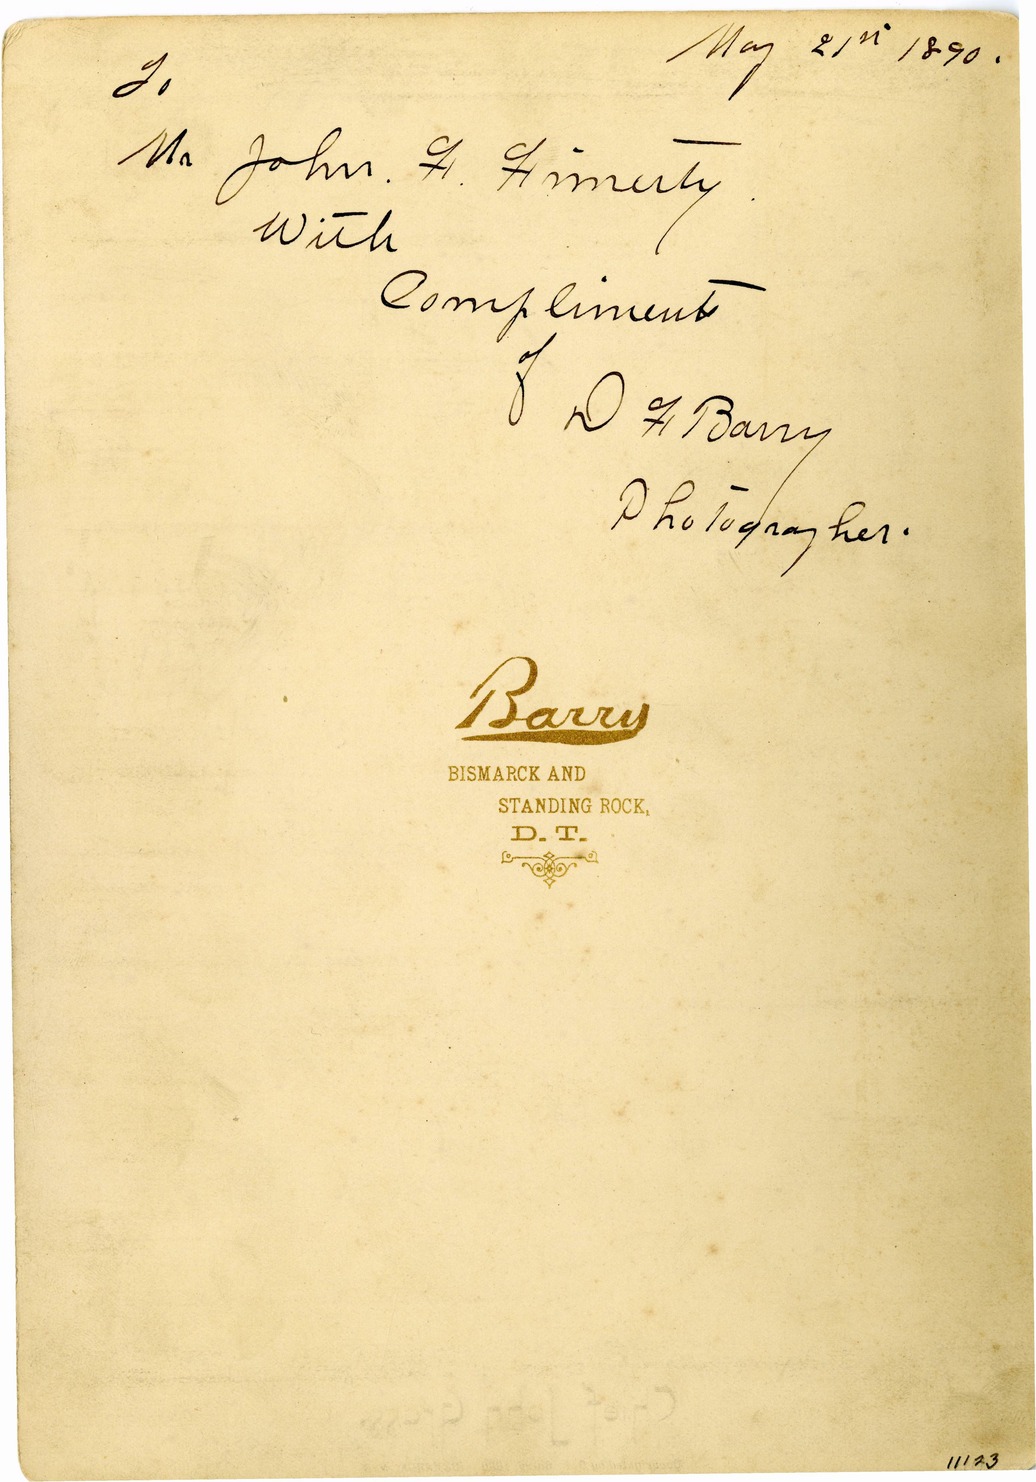 May 21st 1890.
To
Mr John. F. Finnerty.
With
Compliments
of
D F Barry
Photographer.
Barry
BISMARCK AND
STANDING ROCK,
D. T.
Chief John Grass.
11123